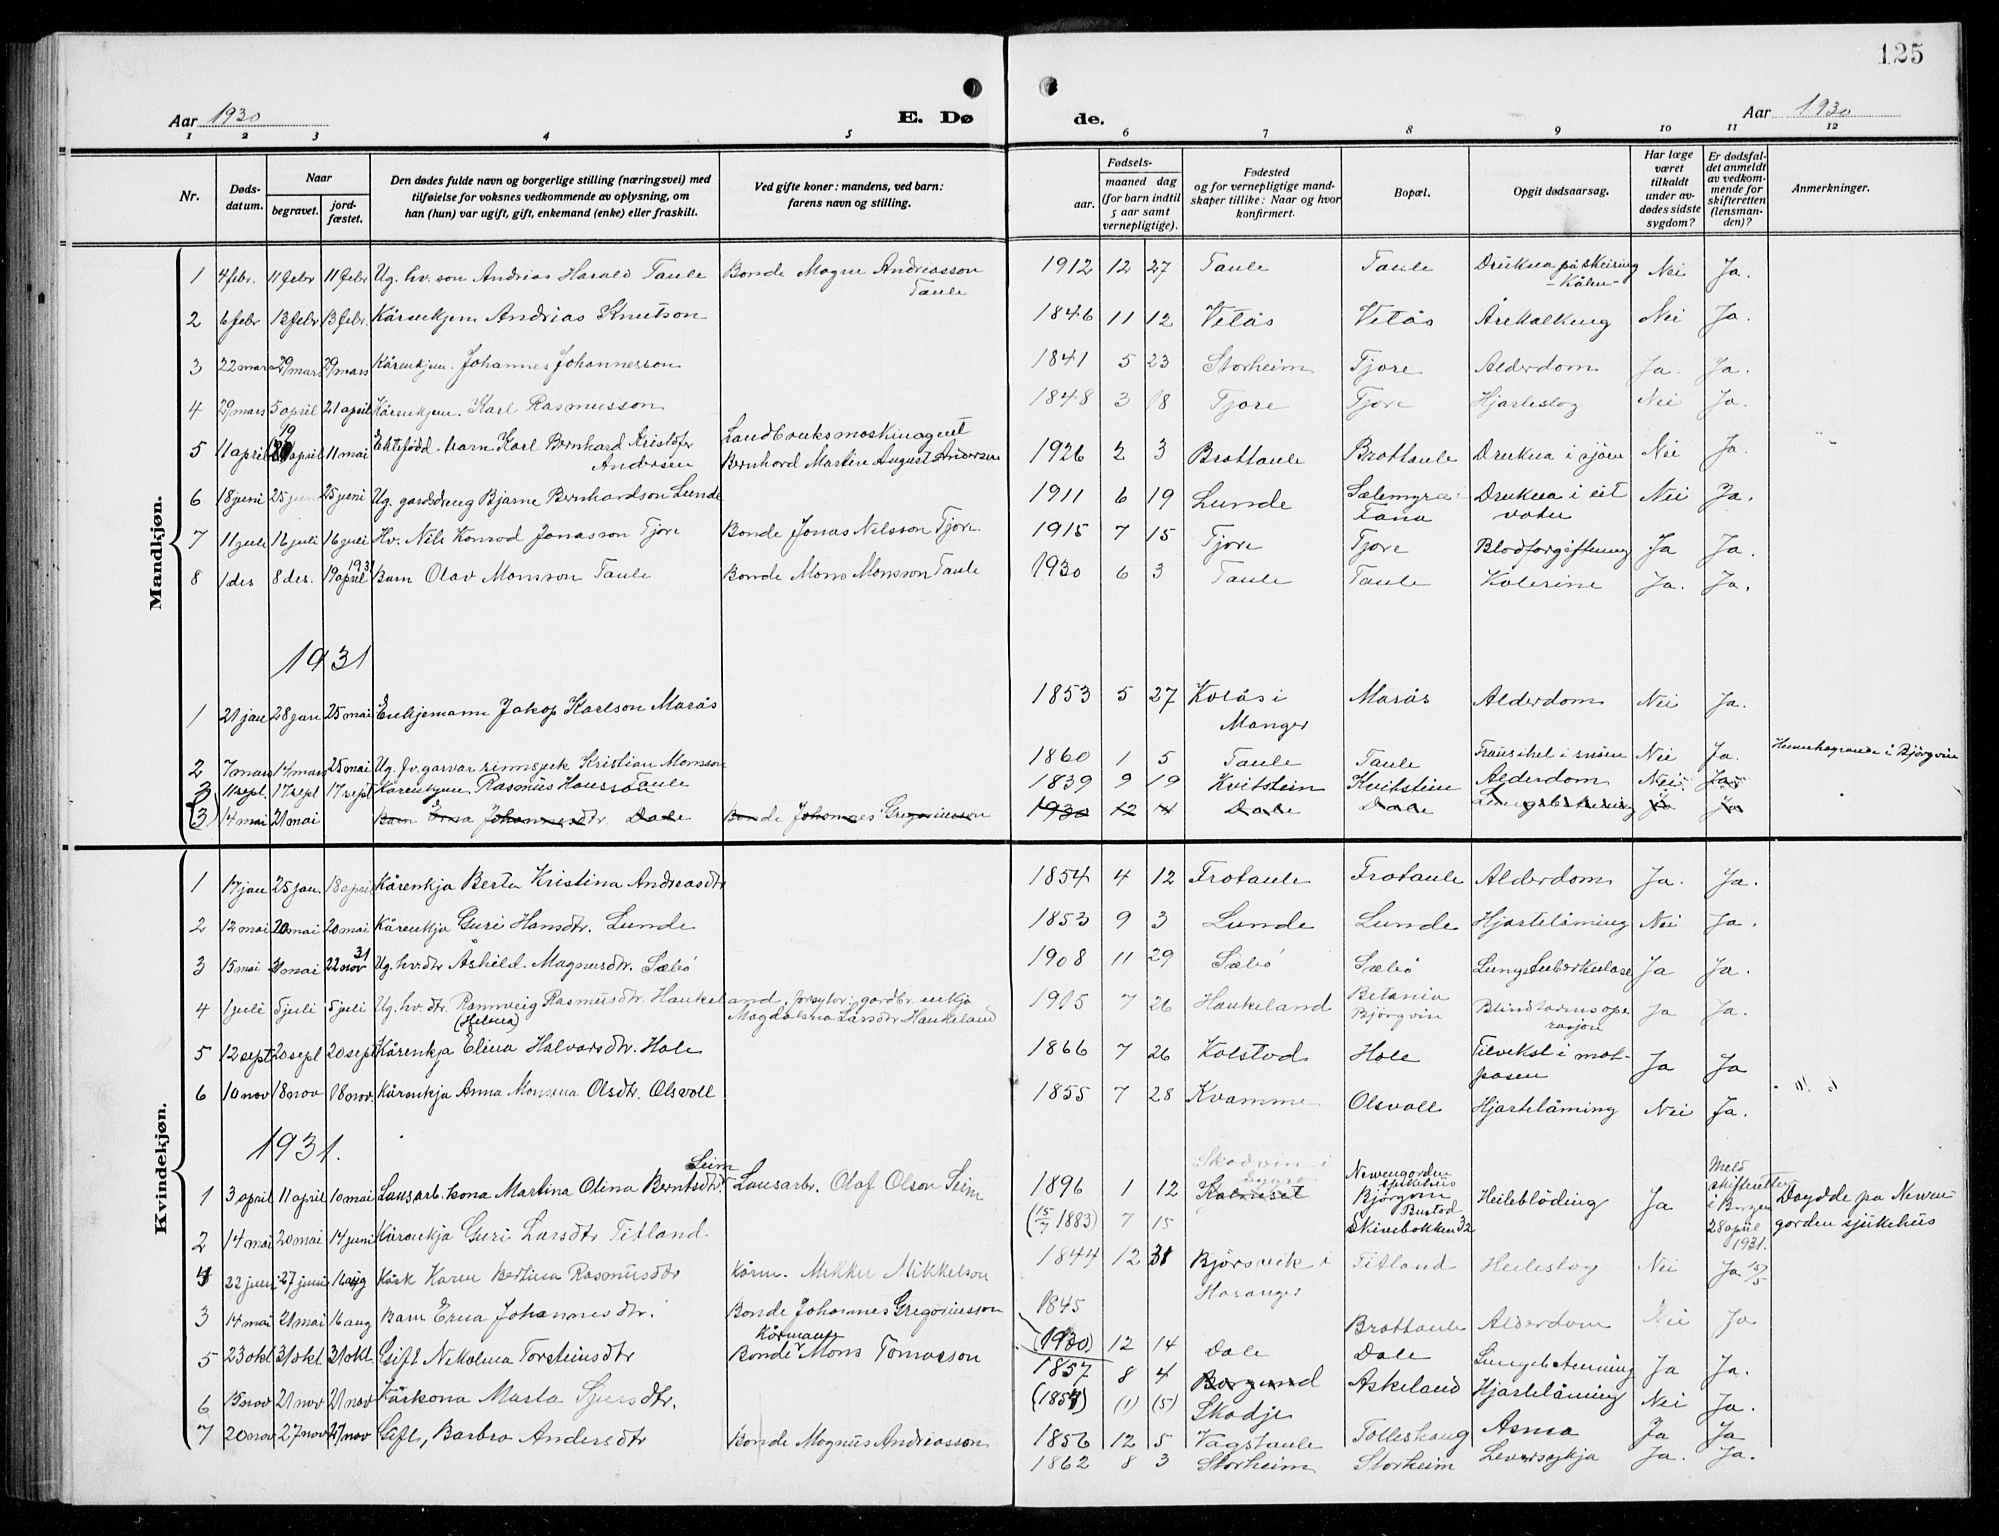 125
Aar 1930
E. Dø
de.
Aar 1930
1 2 3 4 5 6 7 8 9 10 11 12
Nr.
Døds-
datum.
Naar
begravet.
jord-
fæstet.
Den dødes fulde navn og borgerlige stilling (næringsvei) med
tilføielse for voksnes vedkommende av oplysning, om
han (hun) var ugift, gift, enkemand (enke) eller fraskilt.
Ved gifte koner: mandens, ved barn:
farens navn og stilling.
Fødsels-
aar.
maaned dag
(for barn indtil
5 aar samt
vernepligtige).
Fødested
og for vernepligtige mand-
skaper tillike: Naar og hvor
konfirmert.
Bopæl.
Opgit dødsaarsag.
Har læge
været
tilkaldt
under av-
dødes sidste
sygdom?
Er dødsfal-
det anmeldt
av vedkom-
mende for
skifteretten
(lensman-
den)?
Anmerkninger.
Mandkjøn.
1 4 febr. 11 febr 11 febr Ug. hv. son Andrias Harald Taule Bonde Magne Andreasson Taule 1912 12 27 Taule Taule Nei Ja.
2 6 febr 13 febr 13 febr. Kårenkjem Andrias Knutson 1846 11 12 Vetås Vetås Årekalking Nei Ja.
3 22 mars 29 mars 29 mars Kårenkjem. Johannes Johannesson 1841 5 23 Storheim Tjore Alderdom Ja. Ja.
4 29 mars 5 april 21 april Kårenkjem. Karl Rasmusson 1848 3 18 Tjore Tjore Hjarteslag Nei Ja.
5 11 april 19 april 11 mai Ektefødd. barn Karl Bernhard Kristofer Andersen Landbruksmaskinagent Bernhard Martin August Andersen 1926 2 3 Brottaule Brottaule Drukna i sjøen Nei Ja.
6 18 juni 25 juni 25 juni Ug. gardsdreng Bjarne Bernhardson Lunde 1911 6 19 Lunde Sælemyra i Fana Drukna i eit vatn Nei Ja.
7 11 juli 16 juli 16 juli Hv. Nils Konrad Jonasson Tjore Bonde Jonas Nilsson Tjore 1915 7 15 Tjore Tjore Blodforgiftning Ja Ja.
8 1 des 8 des. 19 april 1931 Barn Olav Monsson Taule Bonde Mons Monsson Taule 1930 6 3 Taule Taule Kolerine Ja. Ja.
1931
1 21 jan 28 jan 25 mai Enkjemann Jakop Karlson Marås 1853 5 27 Kolås i Manger Marås Alderdom Nei Ja.
2 7 mars 14 mars 25 mai Ug. fv. garvar sinnsjuk Kristian Monsson Taule 1860 1 5 Taule Taule i snøen Nei Ja. i Bjørgvin
3 11 sept. 17 sept 17 sept Kårenkjem. Rasmus Hansson 1839 9 19 Kvitstein Kvitstein Alderdom Nei. Ja
(3) 14 mai 21 mai Barn Erna Johannesdtr. Dale Bonde Johannes Gregoriusson 1930 12 4 Dale Dale Ja Ja
Kvindekjøn.
1 17 jan 25 jan. 18 april Kårenkja Berta Kristina Andreasdtr 1854 4 12 Frotaule Frotaule Alderdom Ja. Ja.
2 12 mai 20 mai 20 mai Kårenkja Guri Hansdtr. Lunde 1853 9 3 Lunde Lunde Hjartelåming Nei Ja.
3 15 mai 21 mai 22 nov 31 Ug. hv. dtr Åshild Magnusdtr. Sæbö 1908 11 29 Sæbö Sæbö Lungetuberkulose Ja Ja.
4 1 juli 5 juli 5 juli Ug. hv. dtr. Rannveig Rasmusdtr. Haukeland (Helena) forsytar: gardbr. enkja Magdalena Larsdtr Haukeland 1905 7 26 Haukeland Betania Bjørgvin Blindtarmsope rasjon Ja Ja.
5 12 sept 20 sept 20 sept Kårenkja Elina Halvorsdtr. Hole 1866 7 26 Kolstad Hole Tilvekst i mat- posen Ja Ja
6 10 nov 18 nov 18 nov. Kårenkja Anna Monsina Olsdtr. Olsvoll 1855 7 28 Kvamme Olsvoll Hjartelåming Nei Ja.
1931.
1 3 april 11 april 10 mai Lausarb. kona Martina Olina Berntsdtr. Seim Lausarbr. Olaf Olson Seim 1896 1 12 Skodvin i Lygra Kalneset Nevengarden sjukehus Bjørgvin Bustad Skivebakken 32 Heileblöding Ja Meld skifteretten i Bergen 28 april 1931. Döydde på Neven- garden sjukehus
(15/7 1883) 7 15
2 14 mai 20 mai 14 juni Kårenkja Guri Larsdtr Titland. 1844 12 31 Bjørsvik i Hosanger Titland Heileslag Nei Ja 15/5
4 22 juni 27 juni 16 aug Kårk Karen Bertina Rasmusdtr Kårm. Mikkel Mikkelson 1845 Brottaule Alderdom Nei Ja
3 14 mai 21 mai 16 aug Barn Erna Johannesdtr. Bonde Johannes Gregoriusson (1930) 12 14 Dale Dale Ja Ja.
5 23 okt 31 okt 31 okt. Gift Nikolina Torsteinsdtr Kårmann Bonde Mons Tomasson 1857 8 4 Askeland Hjartelåming Nei Ja.
6 15 nov 21 nov 21 nov Kårkona Marta Sjursdtr. (1857) (1) (5) Skodje
7 20 nov 27 nov 27 nov Gift, Barbro Andersdtr Bonde Magnus Andreasson 1856 12 5 Vågstaule Tolleshaug Asma Ja Ja
1862 8 3 Storheim Storheim Leversykja Ja. Ja.